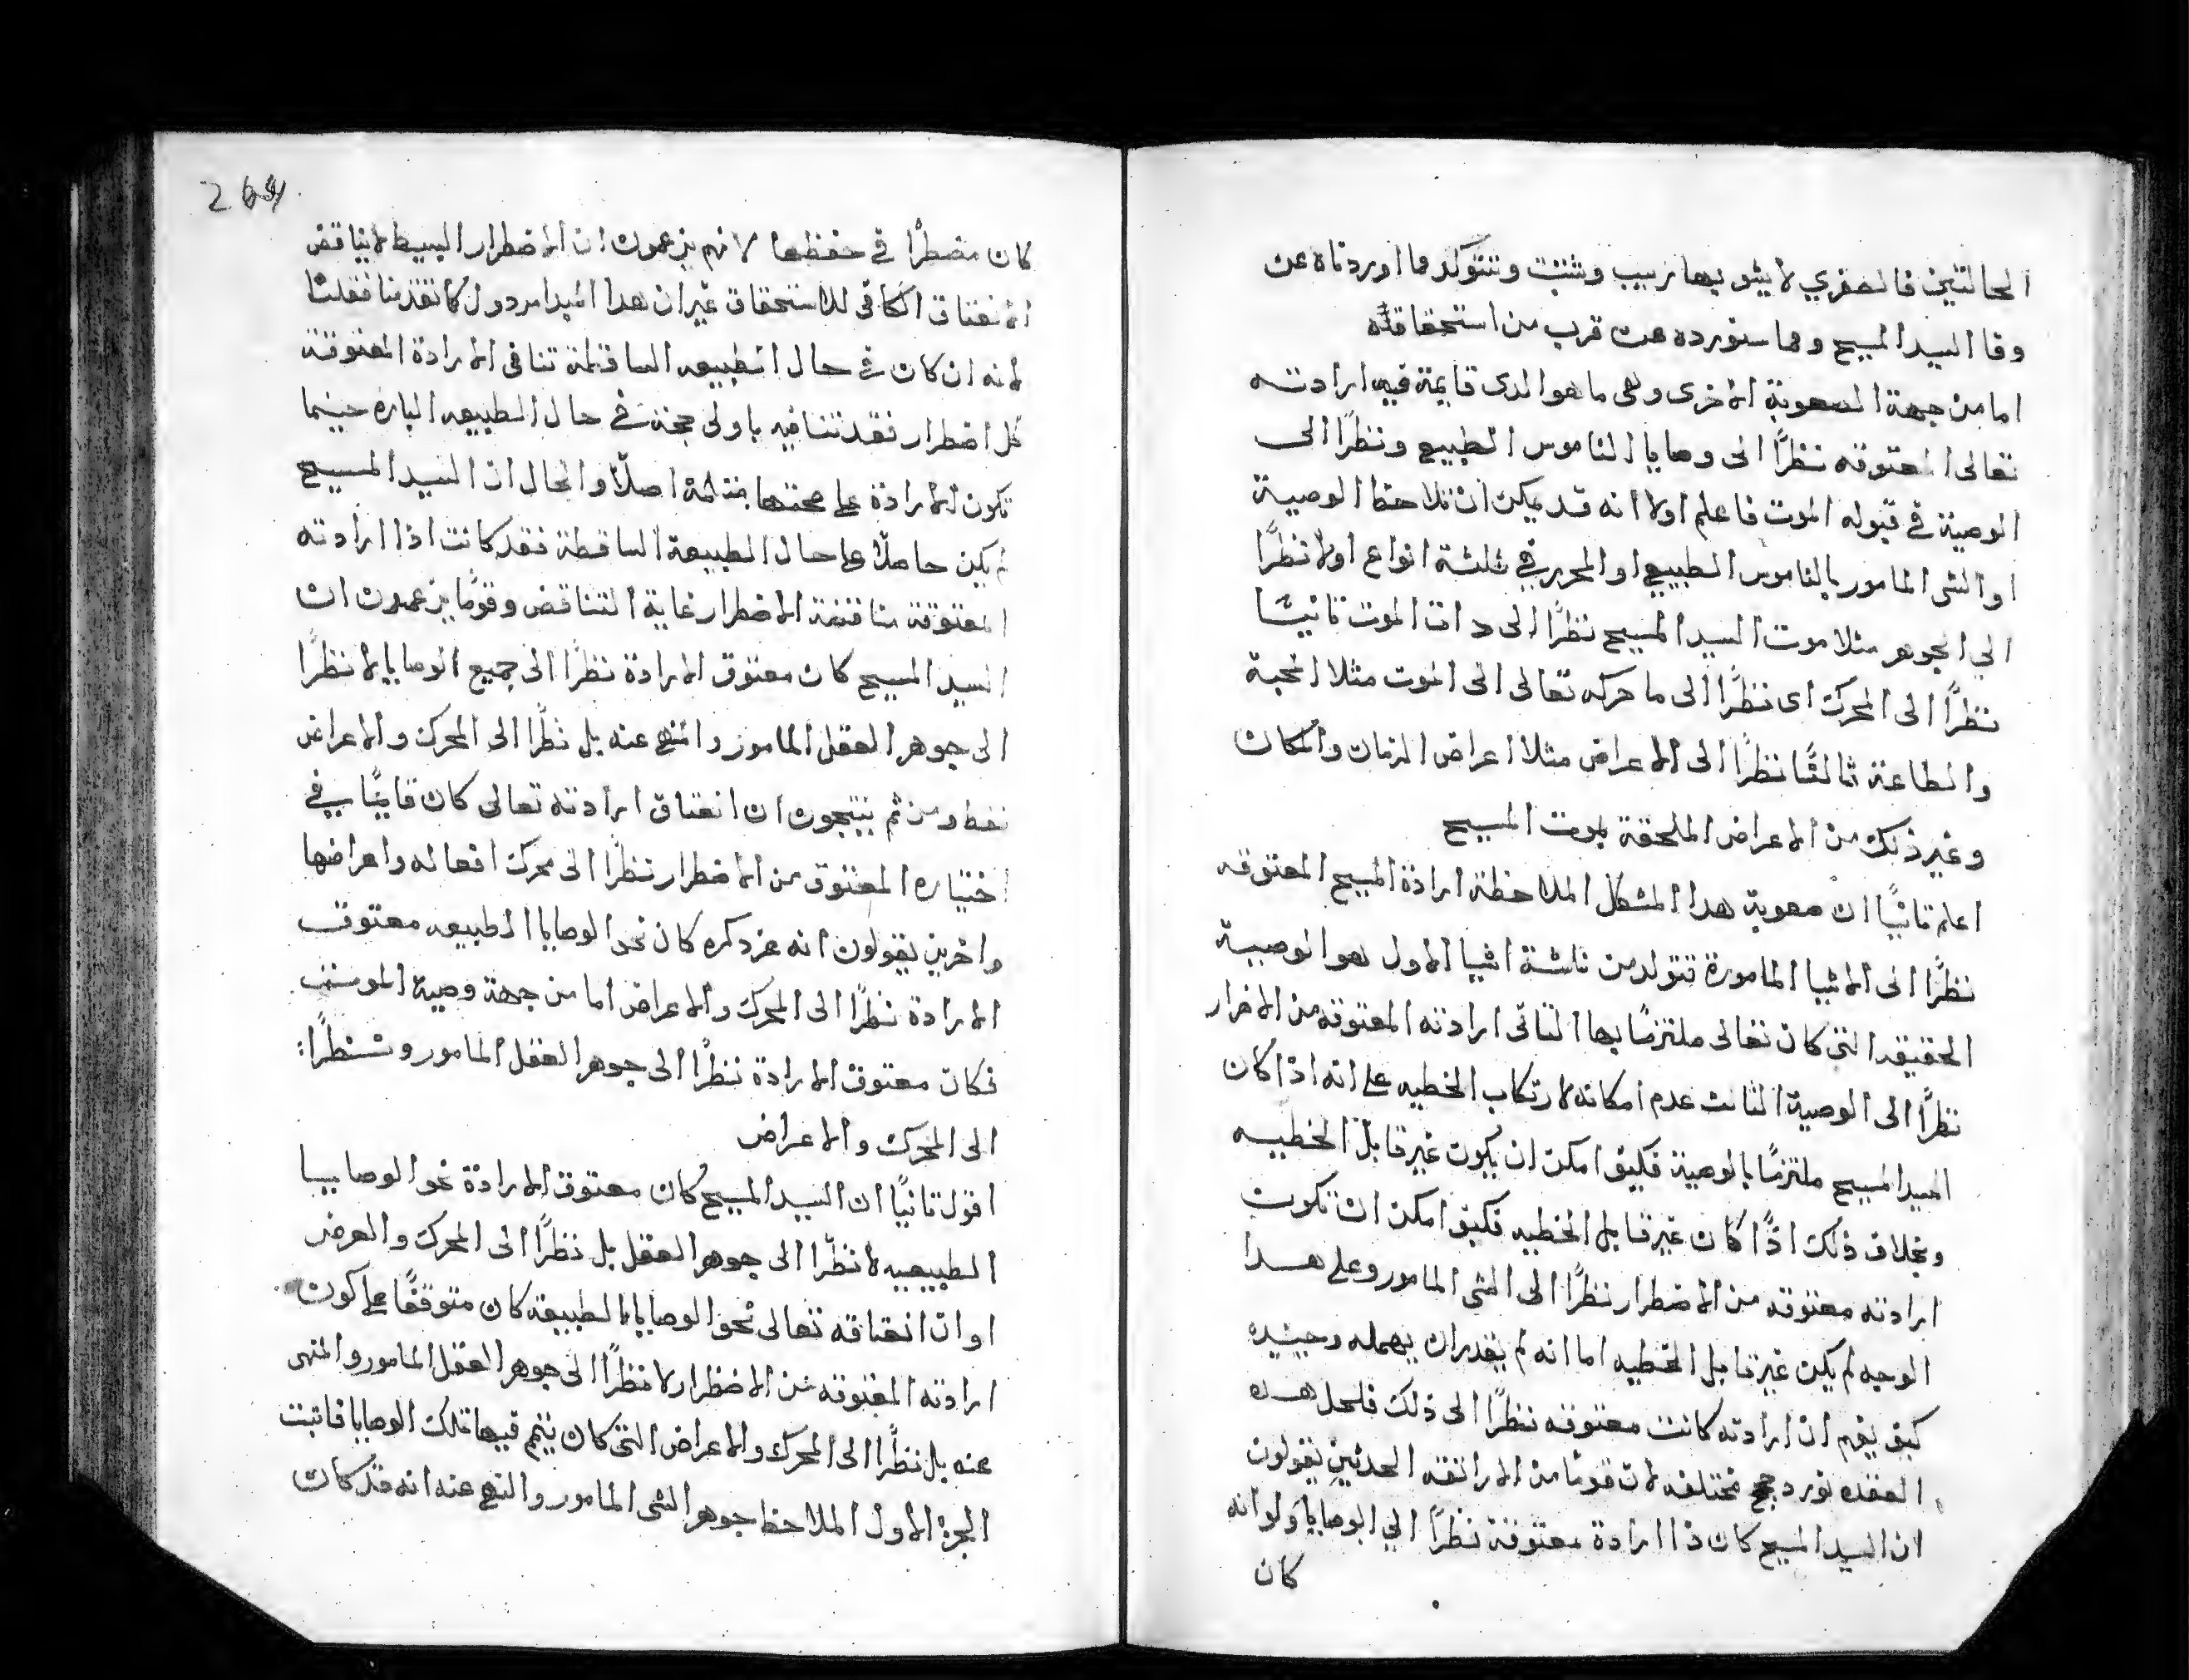 الحالتين فالصغري لا يشوبها ريب وتثبت وتتوكد مما اوردناه عن
وفا السيد المسيح ومما سنورده عن قرب من استحقاقاته
اما من جهة الصعوبة الاخرى وهى ما هو الدى قايمة فيه ارادته
تعالى المعتوقه نظرًا الى وصايا الناموس الطبيعى ونظرًا الى
الوصية في قبوله الموت فاعلم اولا انه قد يمكن ان تلاحظ الوصية
او الشى المامور بالناموس الطبيعي او المحرر في ثلثة انواع اولا نظرًا
الي الجوهر مثلا موت السيد المسيح نظرًا الى دات الموت ثانيًا
نظرًا الى المحرك اى نظرًا الى ما حركه تعالى الى الموت مثلا المحبة
والطاعة ثالثًا نظرًا الى الاعراض مثلا اعراض الزمان والمكان
وغير ذلك من الاعراض الملحقة بموت المسيح
اعلم ثانيًا ان صعوبة هدا المشكل الملاحظة ارادة المسيح المعتوقه
نظرًا الى الاشيا المامورة تتولد من ثلثة اشيا الاول هو الوصية
الحقيقه التى كان تعالى ملتزمًا بها الثانى ارادته المعتوقه من الاضرار
نظرًا الى الوصية الثالث عدم امكانه لارتكاب الخطيه على انه اذا كان
السيد المسيح ملتزمًا بالوصية فكيف امكن ان يكون غير قابل الخطيه
وبخلاف ذلك اذًا كان غير قابل الخطيه فكيف امكن ان تكون
ارادته معتوقه من الاضطرار نظرًا الى الشى المامور وعلى هدا
الوجه لم يكن غير قابل الخطيه اما انه لم يقدر ان يهمله وحينيده
كيف يفهم ان ارادته كانت معتوقه نظرًا الى ذلك فلحل هده
العقده نورد حجج مختلفه لان قومًا من الاراتقه الحدثين يقولون
ان السيد المسيح كان ذا ارادة معتوقة نظرًا الي الوصايا ولو انه
كان
264
كان مضطرًا في حفظها لانهم يزعمون ان الاضطرار البسيط لا يناقض
الانعتاق الكافى للاستحقاق غير ان هدا المبدا مردول كما تقدمنا فقلنا
لانه ان كان في حال الطبيعه الساقطة تنافى الارادة المعتوقة
كل اضطرار فقد تنافيه باولى حجة في حال الطبيعه الباره حينما
تكون الارادة على صحتها اصلًا والحال ان السيد المسيح
لم يكن حاصلًا على حال الطبيعة الساقطة فقد كانت اذا ارادته
المعتوقة مناقضة الاضطرار غاية التناقض وقومًا يزعمون ان
السيد المسيح كان معتوق الارادة نظرًا الى جميع الوصايا لا نظرًا
الى جوهر الفعل المامور والمنهى عنه بل نظرًا الى المحرك والاعراض
فقط ومن ثم ينتجون ان انعتاق ارادته تعالى كان قايمًا في
اختياره المعتوق من الاضطرار نظرًا الى محرك افعاله واعراضها
واخرين يقولون انه عز دكره كان نحو الوصايا الطبيعه معتوق
الارادة نظرًا الى المحرك والاعراض اما من جهة وصية الموت
فكان معتوق الارادة نظرًا الى جوهر الفعل المامور ونظرًا:
الى المحرك والاعراض
اقول ثانيًا ان السيد المسيح كان معتوق الارادة نحو الوصايا
الطبيعيه لا نظرًا الى جوهر الفعل بل نظرًا الى المحرك والعرض
او ان انعتاقه تعالى نحو الوصايا الطبيعة كان متوقفًا على كون
ارادته المعتوقه من الاضطرار لا نظرًا الى جوهر الفعل المامور والمنهى
عنه بل نظرًا الى المحرك والاعراض التى كان يتمم فيها تلك الوصايا فاثبت
الجزء الاول الملاحظ جوهر الشى المامور والنهى عنه انه قد كان